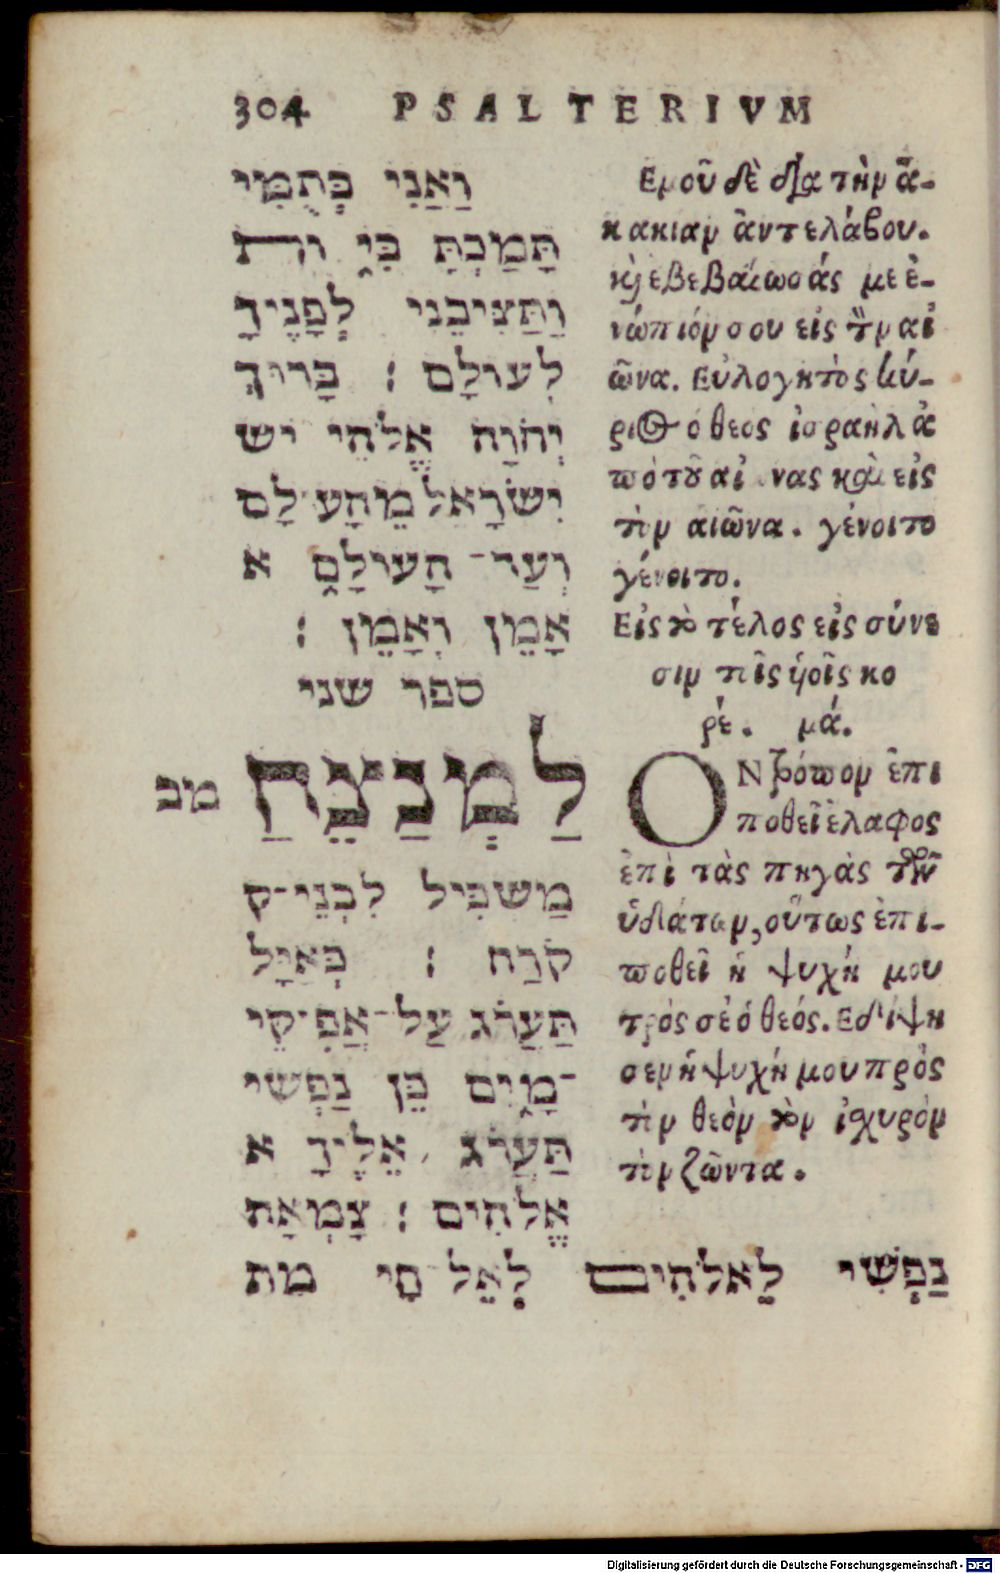 304 PSALTERIVM
וַאֲנִי בְּתֻמִּי
תָּמַכְתָּ בִּי וה
וַתַּצִּיבֵנִי לְפָנֶיךָ
לְעולָם : בָּרוּךְ
יְהֹוָה אֱלֹהֵי יש
יִשְׂרָאֵל מֵהָע לָם
וְעַד־ הָעולָם א
אָמֵן וְאָמֵן :
ספר שני
מב לַמְנַצֵּחַ
מַשְׂכִּיל לִבְנֵי־ק
קֹרַח : כְּאַיָּל
תַּעֲרֹג עַל־אֲפִיקֵי
־מָיִם כֵּן נַפְשִׁי
תַּעֲרֹג אֵלֶיךָ א
אֱלֹהִים : צָמְאָה
נַפְשִׁי לֵאלֹהִים לְאֵל חָי מת
Εμοῦ δὲ διὰ τὴν ἀ-
κακιαν ἀντελάβου.
κὶ εβεβαίωσάς με ἐ-
νώπιόν σου εἰς τὸν αἰ
ῶνα. Εὐλογητὸς κύ-
ριος ὁ θεος ἰσραὴλ ἀ
πὸ τοῦ αἰ νας καὶ εἰς
τὸν αιῶνα. γένοιτο
γένοιτο.
Εἰς τὸ τέλος εἰς σύνε
σιν τοῖς ὑοῖς κο
ρέ. μά.
ΟΝ τρόπον ἐπι
ποθεῖ ἐλαφος
ἐπὶ τὰς πηγὰς τῶν
ὑδάτων, οὕτως ἐπι-
ποθεῖ ἡ ψυχή μου
πρὸς σέ ὁ θεός. Εδίψη
σεν ἡ ψυχή μου πρὸς
τὸν θεὸν τὸν ἰσχυρὸν
τὸν ζῶντα.
Digitalisierung gefördert durch die Deutsche Forschungsgemeinschaft - DFG